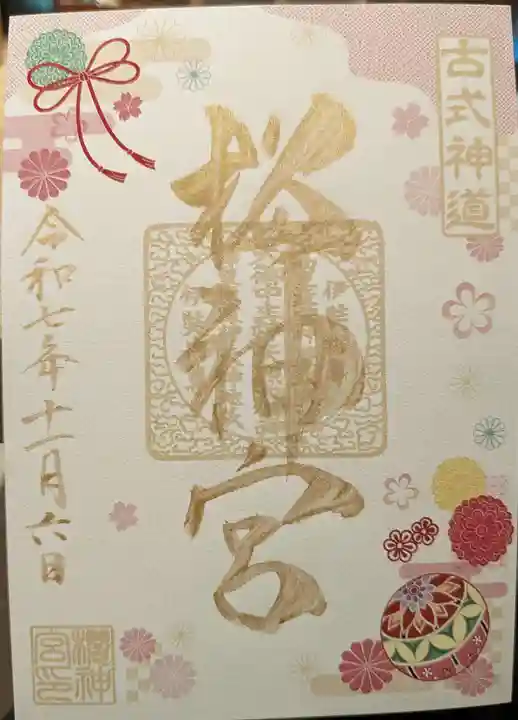 古式神道
桜神宮
令和七年十一月六日
櫻神
宮印